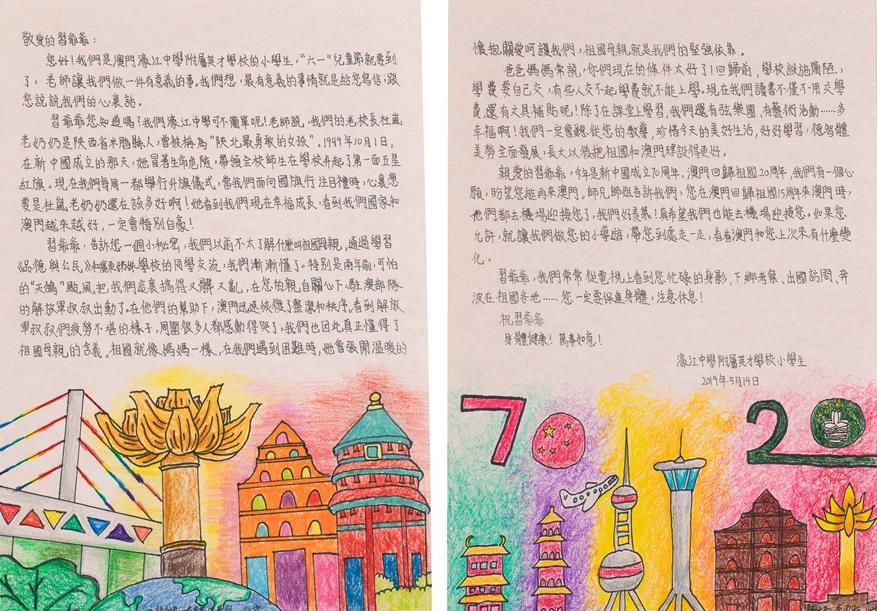 敬愛的習爺爺：
您好！我們是澳門濠江中學附屬英才學校的小學生，“六一”兒童節就要到
了，老師讓我們做一件有意義的事，我們想，最有意義的事情就是給您寫信，跟
您說說我們的心裏話。
習爺爺您知道嗎！我們濠江中學可不簡單呢！老師說，我們的老校長杜嵐
老奶奶是陝西省米脂縣人，曾被稱為“陝北最勇敢的女孩”。1949年10月1日，
在新中國成立的那天，她冒著生命危險，帶領全校師生在學校升起了第一面五星
紅旗。現在我們每周一都舉行升旗儀式，當我們面向國旗行注目禮時，心裏想
要是杜嵐老奶奶還在該多好啊！她看到我們現在幸福成長，看到我們國家和
澳門越來越好，一定會特別自豪！
習爺爺，告訴您一個小秘密，我們以前不太了解什麼叫祖國母親，通過學習
《品德與公民》和姊妹學校的同學交流，我們漸漸懂了。特別是兩年前，可怕
的“天鴿”颱風把我們這裏搞得又髒又亂，在您的親自關心下，駐澳部隊
的解放軍叔叔出動了。在他們的幫助下，澳門迅速恢復了整潔和秩序。看到解放
軍叔叔們疲勞不堪的樣子，周圍很多人都感動得哭了，我們也因此真正懂得了
祖國母親的含義。祖國就像媽媽一樣，在我們遇到困難時，她會張開溫暖的
懷抱關愛呵護我們，祖國母親就是我們的堅強依靠。
爸爸媽媽常說，你們現在的條件太好了！回歸前，學校設施簡陋，
學費要自己交，有些人交不起學費就不能上學。現在我們讀書不僅不用交學
費，還有文具補貼呢！除了在課堂上學習，我們還有弦樂團，有藝術活動……多
幸福啊！我們一定會聽從您的教導，珍惜今天的美好生活，好好學習，德智體
美勞全面發展，長大以後把祖國和澳門建設得更好。
親愛的習爺爺，今年是新中國成立70周年、澳門回歸祖國20周年，我們有一個心
願，盼望您能再來澳門。師兄師姐告訴我們，您在澳門回歸祖國15周年來澳門時，
他們都去機場迎接您了，我們好羨慕！真希望我們也能去機場迎接您。如果您
允許，就讓我們做您的小導遊，帶您到處走一走，看看澳門和您上次來有什麼變
化。
習爺爺，我們常常從電視上看到您忙碌的身影，下鄉考察、出國訪問、奔
波在祖國各地……您一定要保重身體，注意休息！
祝習爺爺
身體健康！萬事如意！
濠江中學附屬英才學校小學生
2019年5月14日
70
20